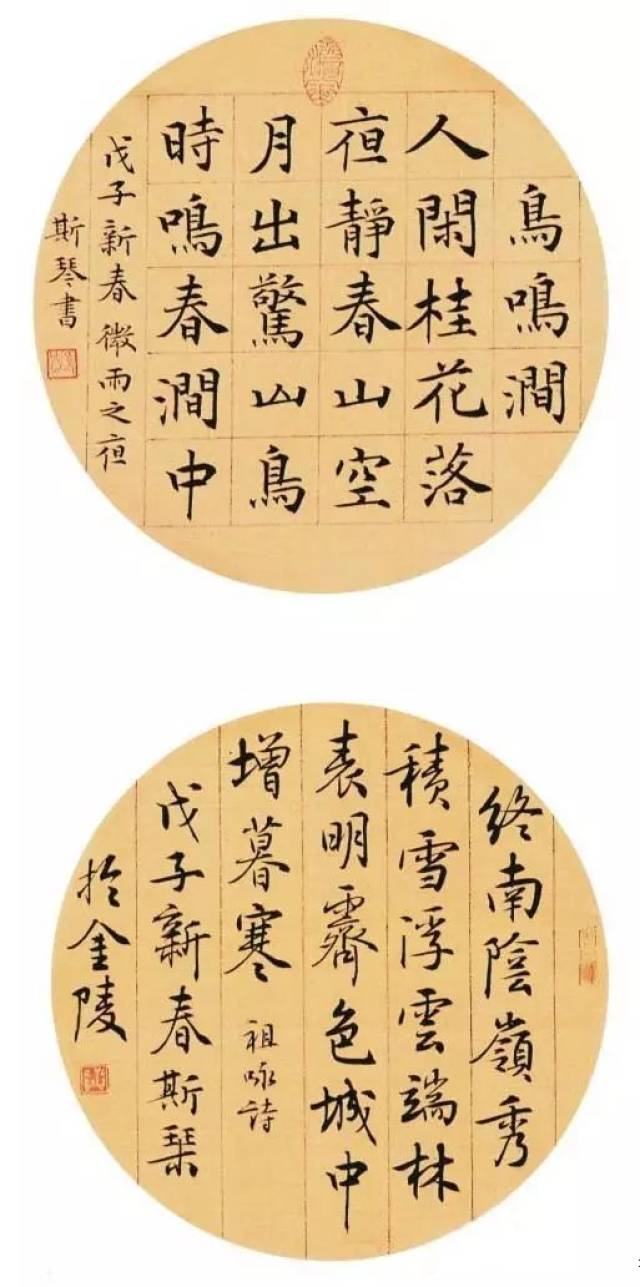 鳥鳴澗
人閑桂花落
夜靜春山空
月出驚山鳥
時鳴春澗中
戊子新春微雨之夜
斯琴書
終南陰嶺秀
積雪浮雲端林
表明霽色城中
增暮寒
祖咏詩
戊子新春斯琴
於金陵